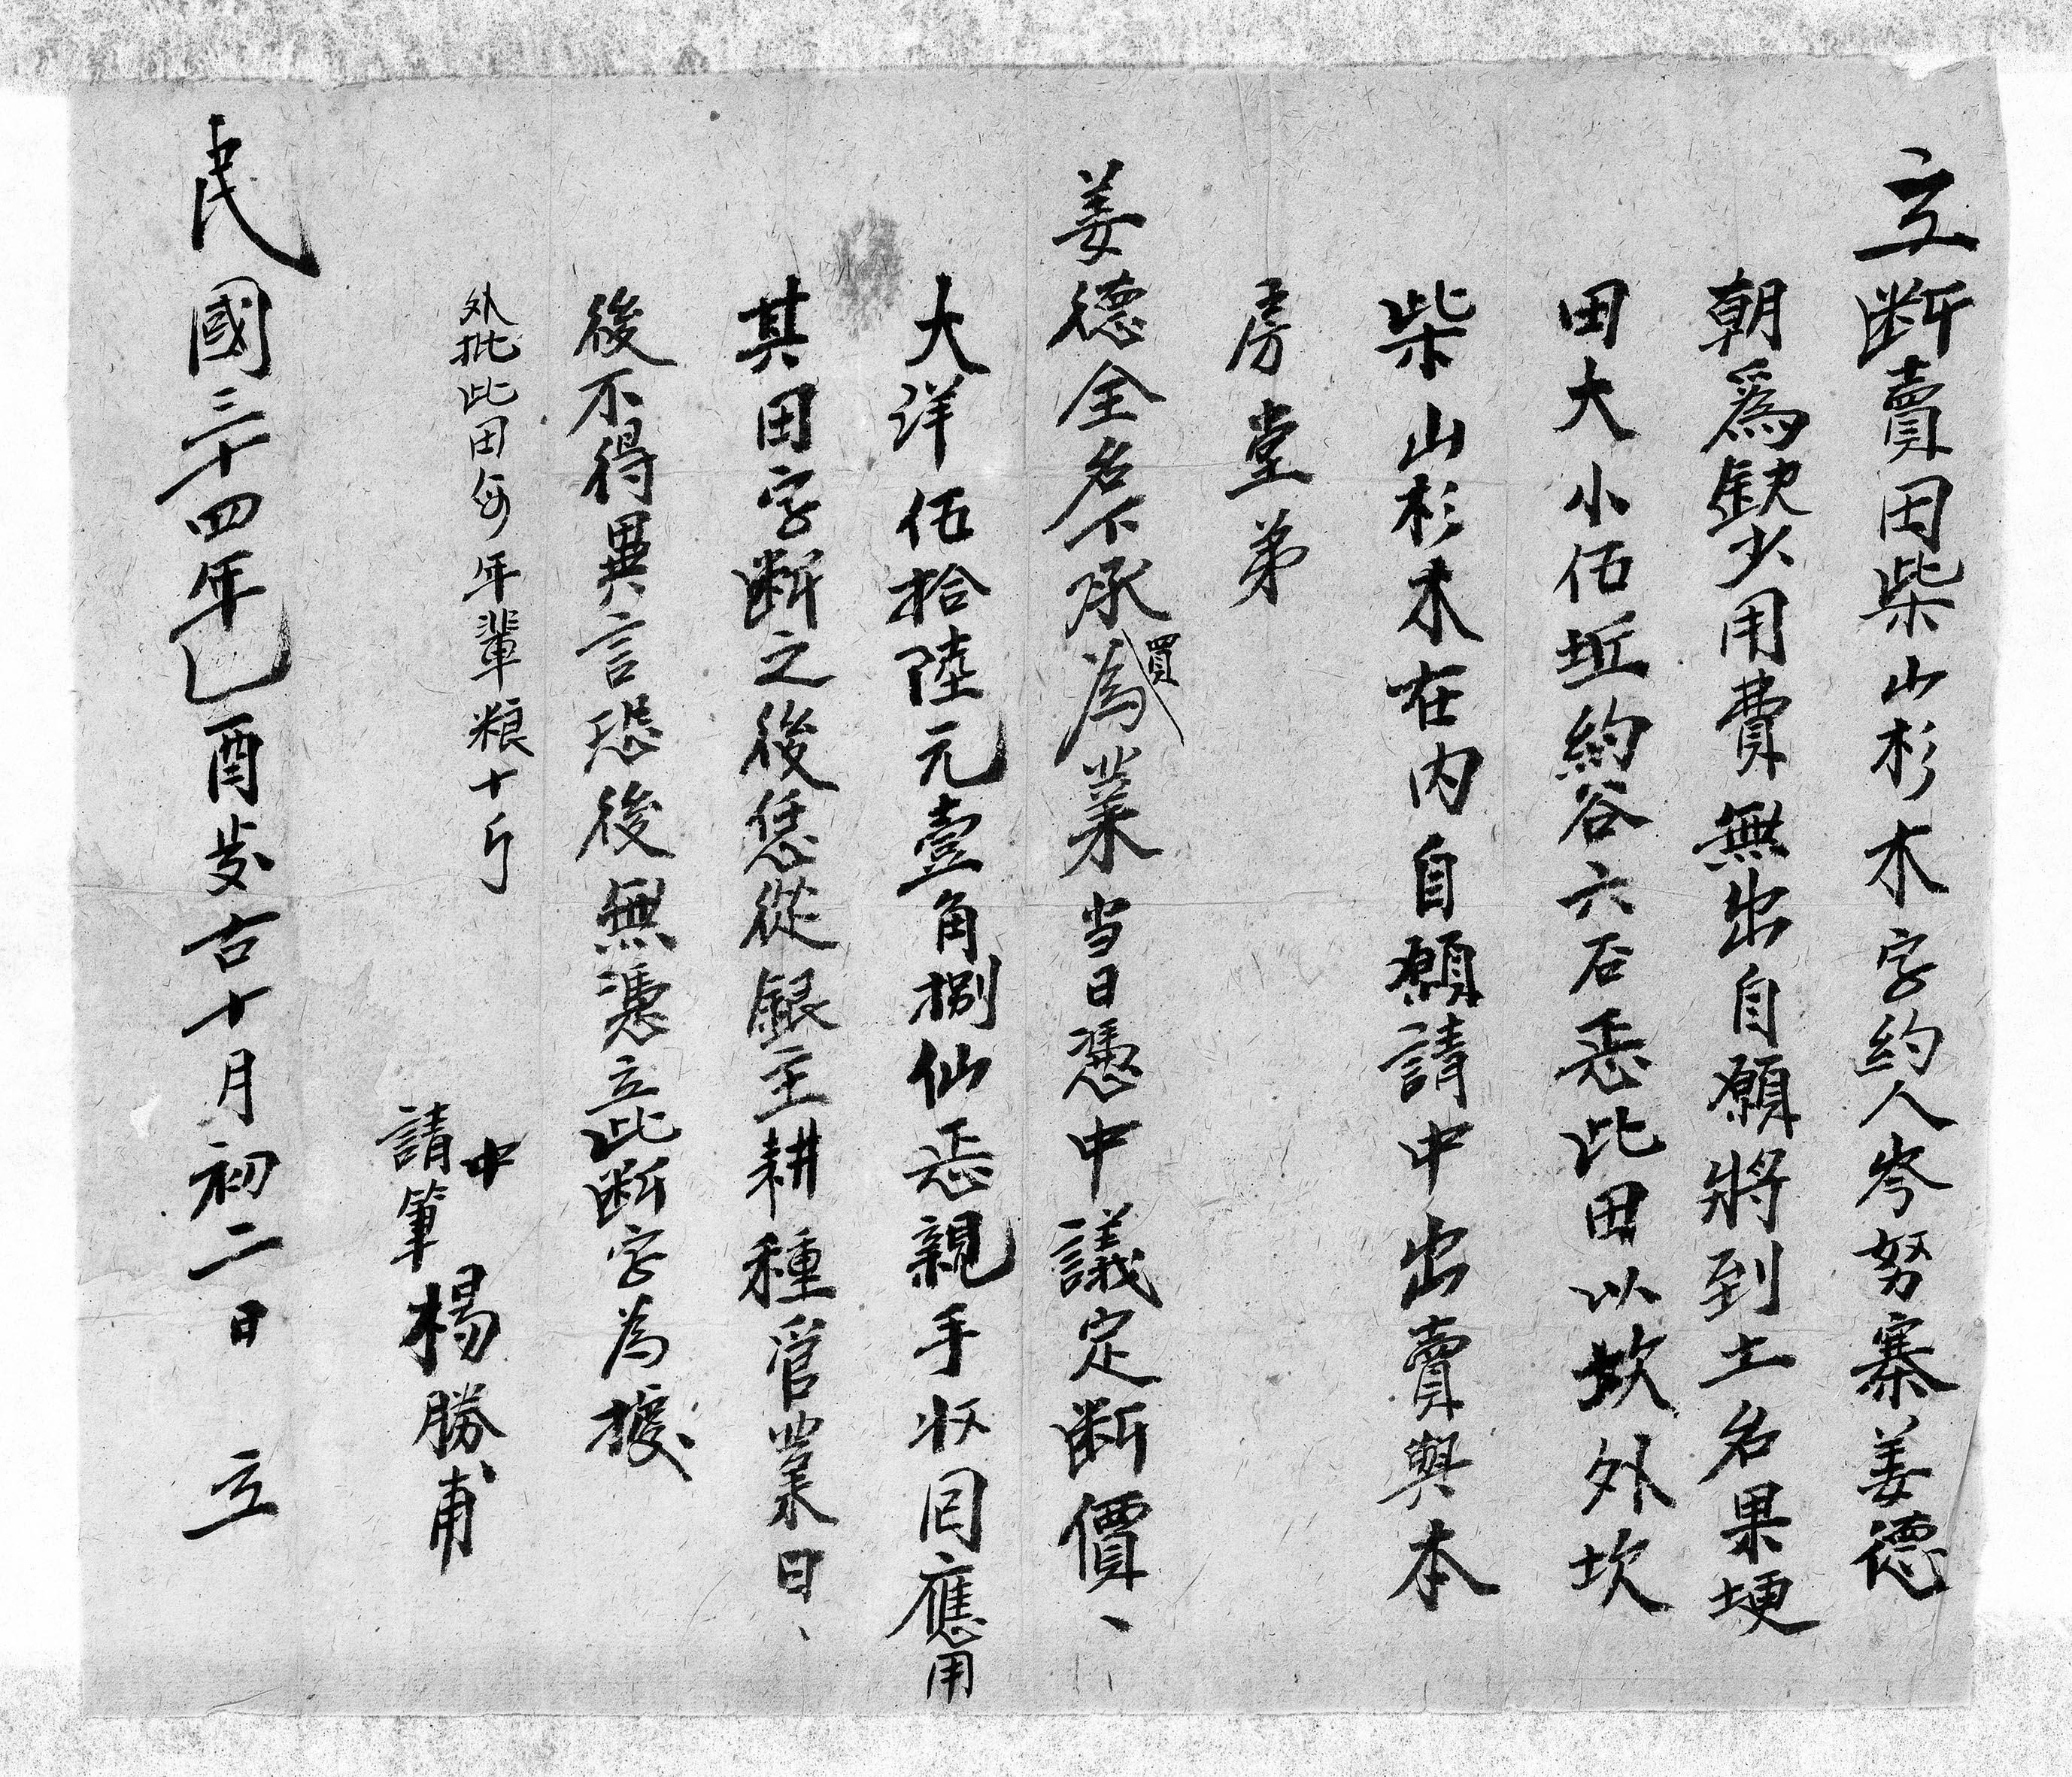 立断賣田柴山杉木字約人岑努寨姜德
朝爲缺少用費無出自願將到土名果埂
田大小伍坵約谷六石恁此田以坎外坎
柴山杉木在内自願請中出賣與本
房堂弟
姜德全名下承買為業当日憑中議定断價、
大洋伍拾陸元壹角捌仙恁親手收回應用
其田字断之後恁從銀主耕種官業日、
後不得異言恐後無憑立此断字為據
外批此田每年輩粮十斤
中
請筆 楊勝甫
民國三十四年乙酉歲古十月初二日 立